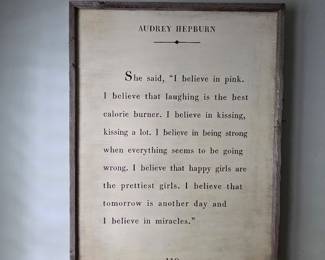 AUDREY HEPBURN
She said, "I believe in pink.
I believe that laughing is the best
calorie burner. I believe in kissing,
kissing a lot. I believe in being strong
when everything seems to be going
wrong. I believe that happy girls are
the prettiest girls. I believe that
tomorrow is another day and
I believe in miracles."